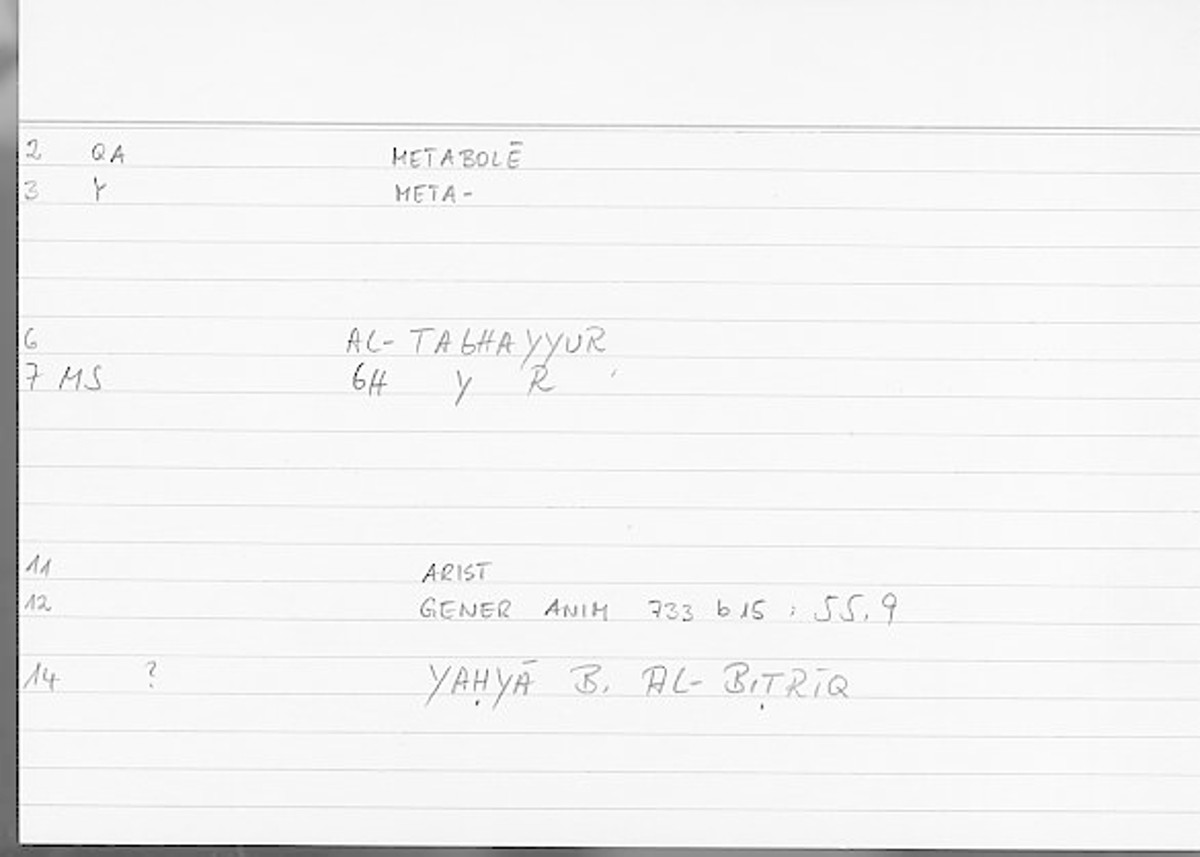 2 QA METABOLĒ
3 Y META-
6 AL- TAGHAYYUR
7 MS GH Y R
11 ARIST
12 GENER ANIM 733 b 15 : 55,9
14 ? YAḤYĀ B. AL- BIṬRĪQ